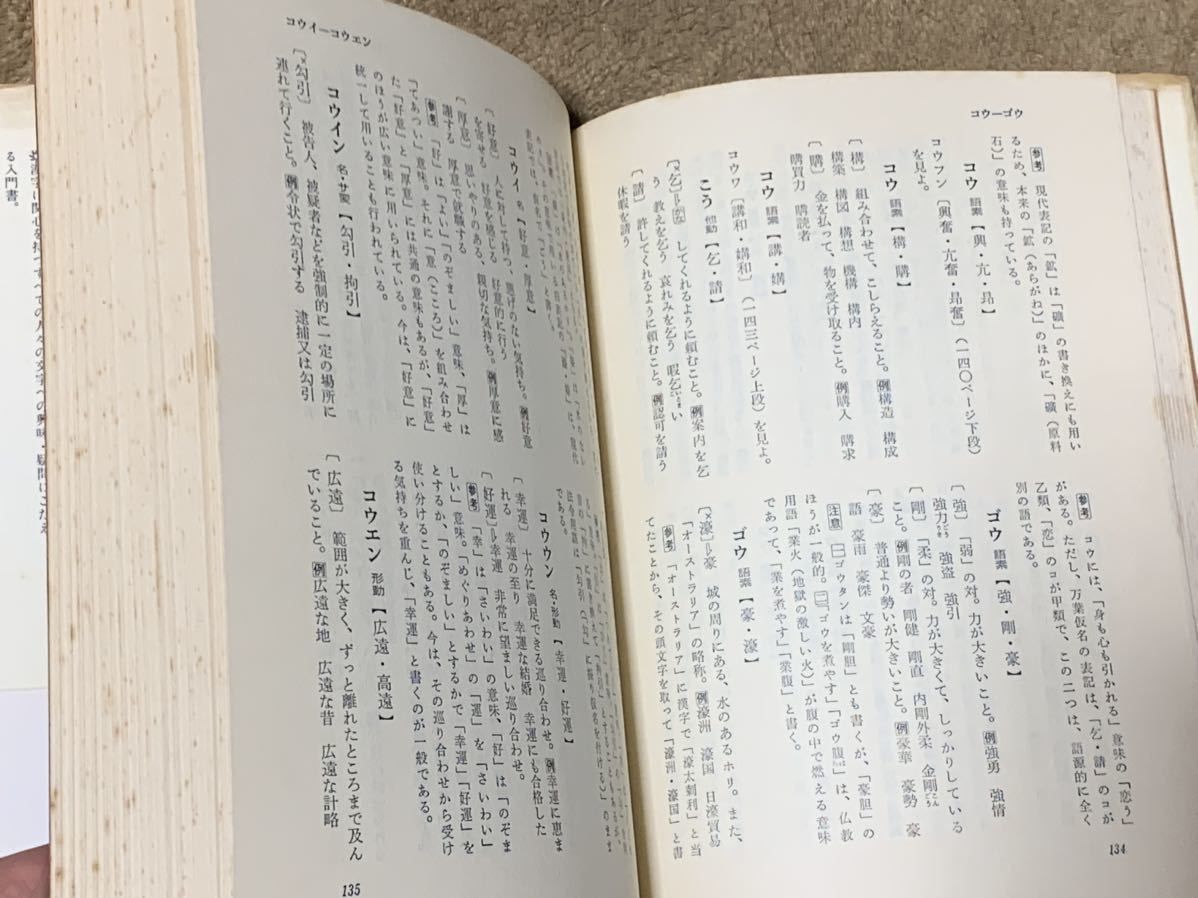 コウ―ゴウ
参考 現代表記の「鉱」は「礦」の書き換えにも用い
るため、本来の「鉱(あらがね)」のほかに、「礦(原料
石)」の意味も持っている。
コウ 語素【興・亢・昂】
コウフン〔興奮・亢奮・昂奮〕(一四〇ページ下段)
を見よ。
コウ 語素【構・購】
〔構〕 組み合わせて、こしらえること。例構造 構成
構築 構図 構想 機構 構内
〔購〕 金を払って、物を受け取ること。例購入 購求
購買力 購読者
コウ 語素【講・媾】
コウワ〔講和・媾和〕(一四三ページ上段)を見よ。
こう 他動【乞・請】
〔×乞〕⇒かな してくれるように頼むこと。例案内を乞
う 教えを乞う 哀れみを乞う 暇乞いとまい
〔請〕 許してくれるように頼むこと。例認可を請う
休暇を請う
参考 コウには、「身も心も引かれる」意味の「恋う」
がある。ただし、万葉仮名の表記は、「乞・請」のコが
乙類、「恋」のコが甲類で、この二つは、語源的に全く
別の語である。
ゴウ 語素【強・剛・豪】
〔強〕 「弱」の対。力が大きいこと。例強勇 強情
強力ごうりき 強盗 強引
〔剛〕 「柔」の対。力が大きくて、しっかりしている
こと。例剛の者 剛健 剛直 内剛外柔 金剛こんごう
〔豪〕 普通より勢いが大きいこと。例豪華 豪勢 豪
語 豪雨 豪傑 文豪
注意 ㊀ゴウタンは「剛胆」とも書くが、「豪胆」の
ほうが一般的。㊁「ゴウを煮やす」「ゴウ腹」は、仏教
用語「業火(地獄の激しい火)」が腹の中で燃える意味
であって、「業を煮やす」「業腹」と書く。
ゴウ 語素【豪・濠】
〔×濠〕⇒豪 城の周りにある、水のあるホリ。また、
「オーストラリア」の略称。例濠洲 濠国 日濠貿易
参考 「オーストラリア」に漢字で「濠太剌利」と当
てたことから、その頭文字を取って「濠洲・濠国」と書
134
コウイ―コウエン
コウイ 名【好意・厚意】
〔好意〕 人に対して持つ、開けのない気持ち。例好意
を寄せる 好意を感じる 好意的に行う
〔厚意〕 思いやりのある、親切な気持ち。例厚意に感
謝する 厚意で就職する
参考 「好」は「よい」「のぞましい」意味、「厚」は
「てあつい」意味。それに「意(こころ)」を組み合わせ
た「好意」と「厚意」には共通の意味もあるが、「好意」
のほうが広い意味に用いられている。今は、「好意」に
統一して用いることも行われている。
コウイン 名・サ変【勾引・拘引】
〔×勾引〕 被告人、被疑者などを強制的に一定の場所に
連れて行くこと。例令状で勾引する 逮捕又は勾引
である。
コウウン 名・形動【幸運・好運】
〔幸運〕 十分に満足できる巡り合わせ。例幸運に恵ま
れる 幸運の至り 幸運な結婚 幸運にも合格した
〔好運〕⇒幸運 非常に望ましい巡り合わせ。
参考 「幸」は「さいわい」の意味、「好」は「のぞま
しい」意味。「めぐりあわせ」の「運」を「さいわい」
とするか、「のぞましい」とするかで「幸運」「好運」を
使い分けることもある。今は、その巡り合わせから受け
る気持ちを重んじ、「幸運」と書くのが一般である。
コウエン 形動【広遠・高遠】
〔広遠〕 範囲が大きく、ずっと離れたところまで及ん
でいること。例広遠な地 広遠な昔 広遠な計略
135
る入門書。